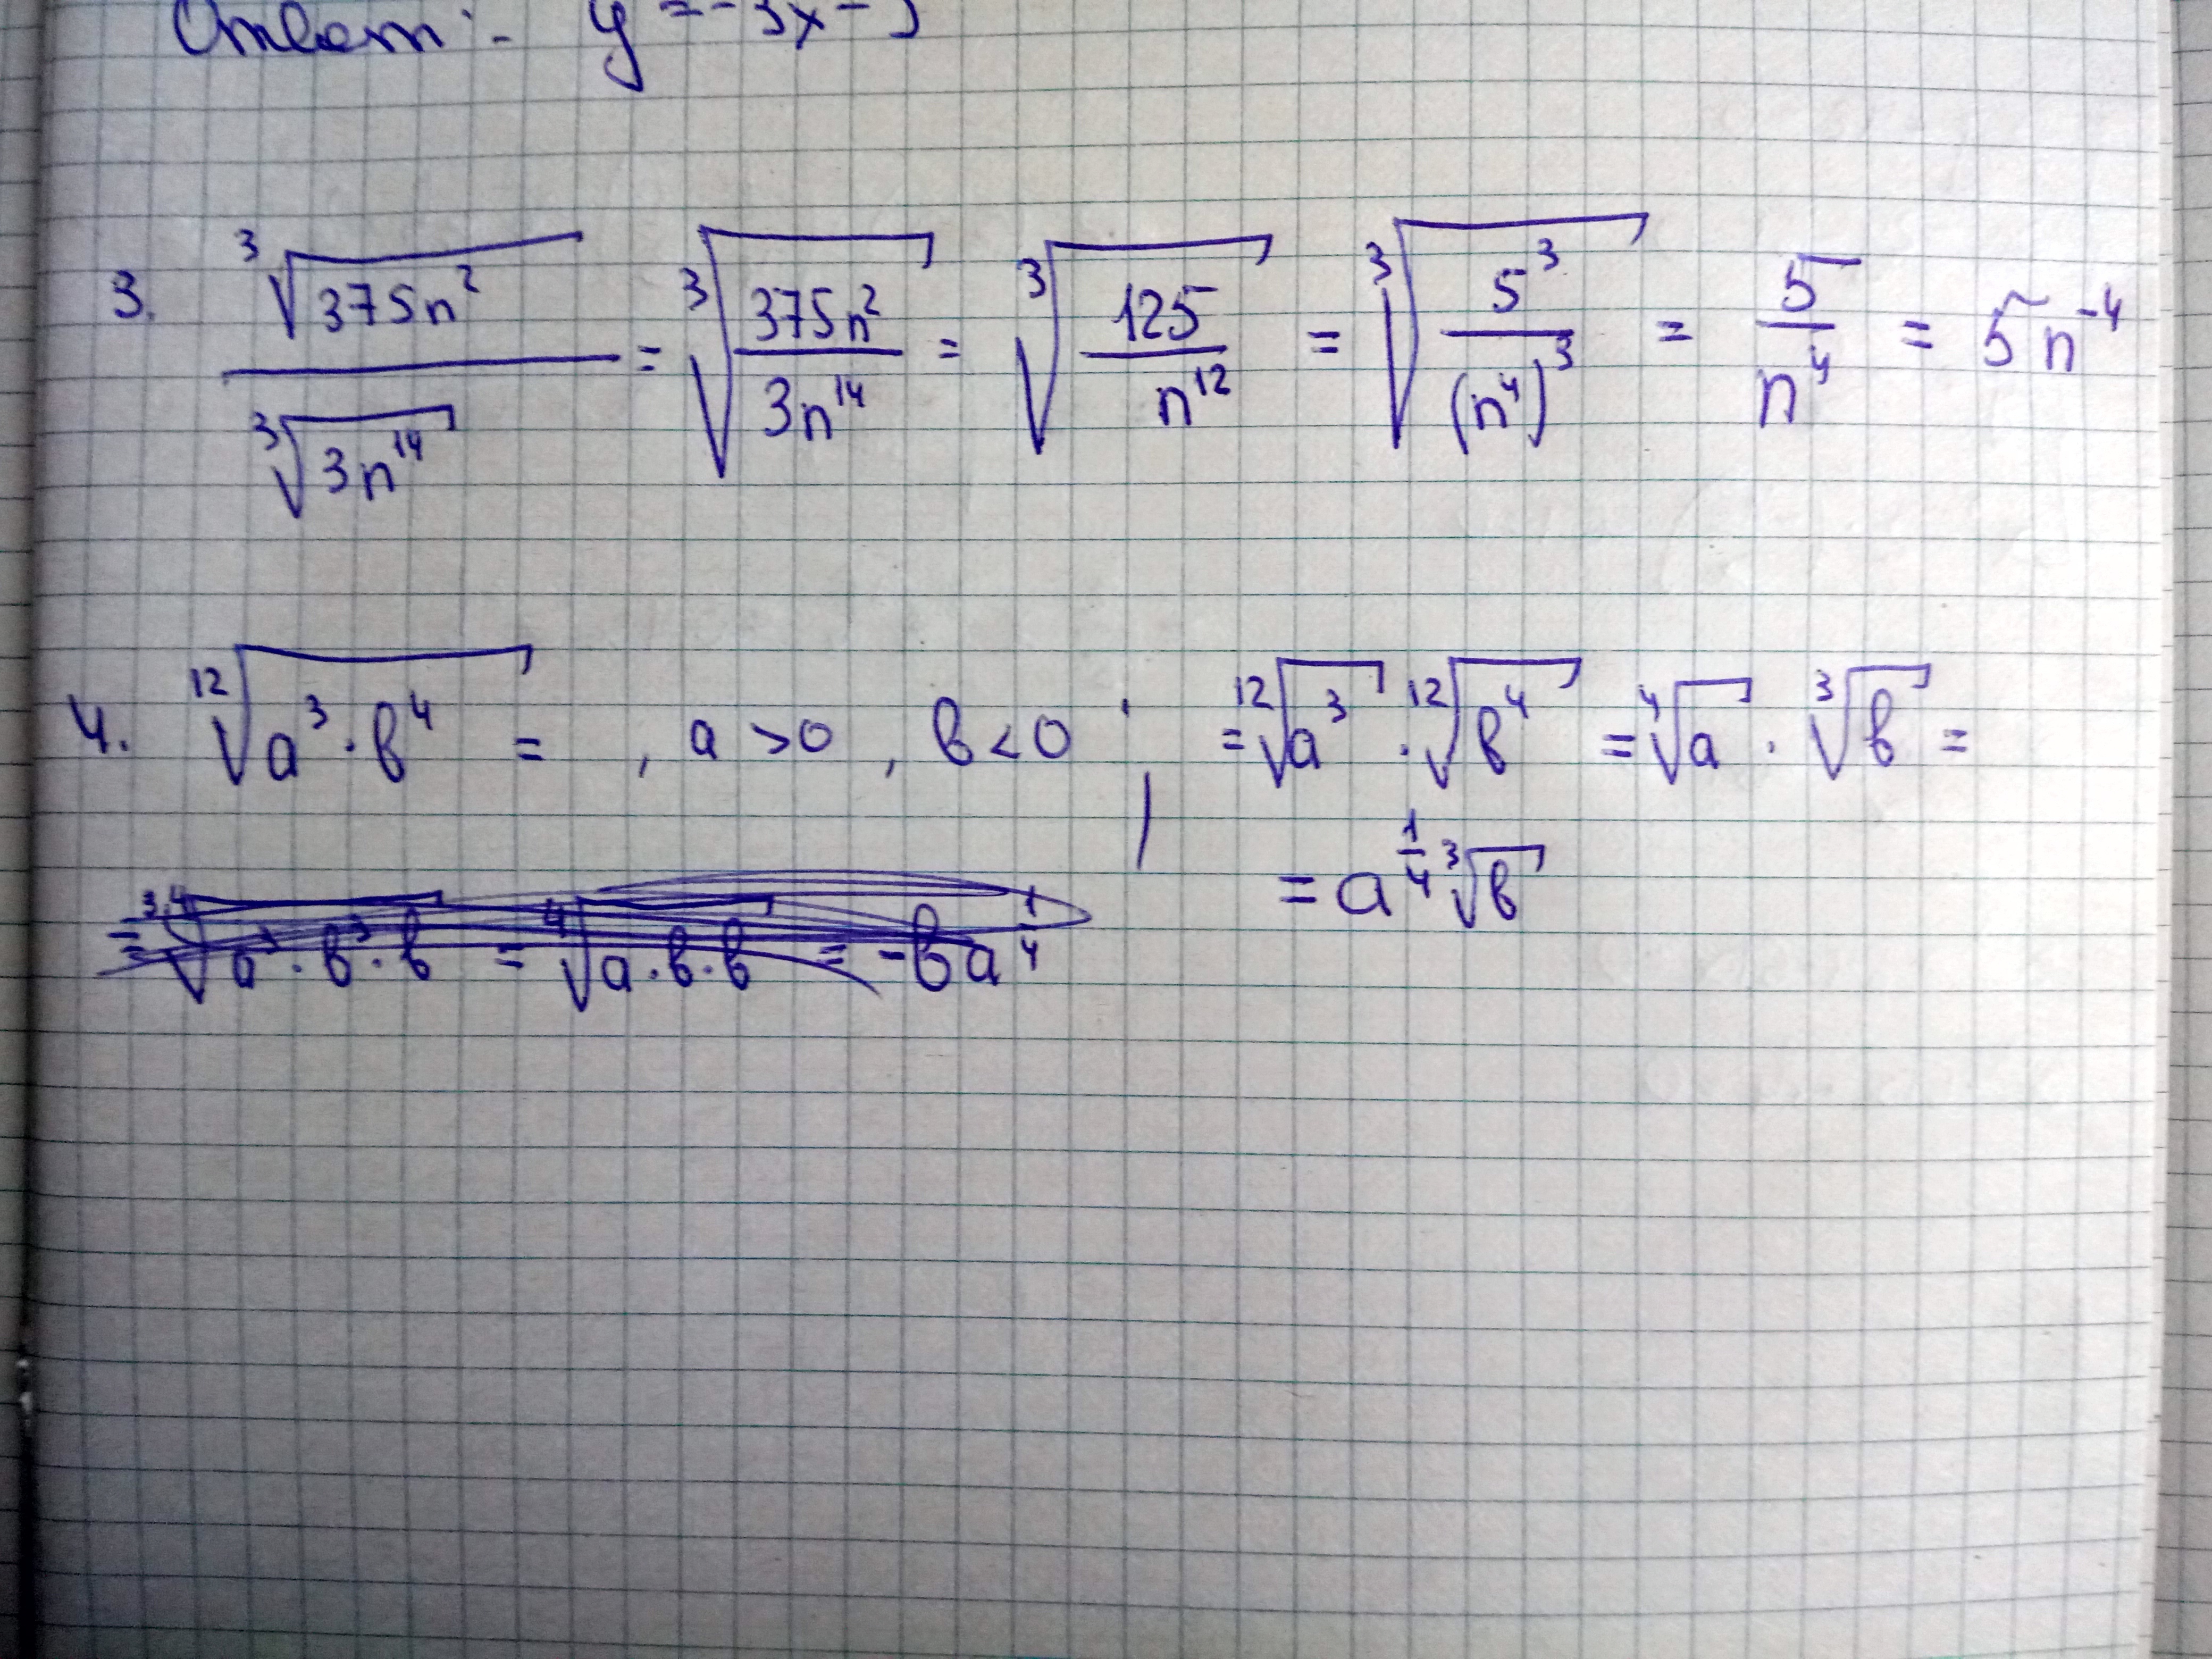 Ответ: y = -3x -
3. ∛(375n²) / ∛(3n¹⁴) = ∛(375n² / 3n¹⁴) = ∛(125 / n¹²) = ∛(5³ / (n⁴)³) = 5 / n⁴ = 5n⁻⁴
4. ¹²√(a³·b⁴) = , a > 0, b < 0; = ¹²√(a³) · ¹²√(b⁴) = ⁴√a · ∛b =
= a^(1/4) ∛b
= ³·⁴√(a³·b³·b) = ⁴√(a·b·b) = -ba^(1/4)